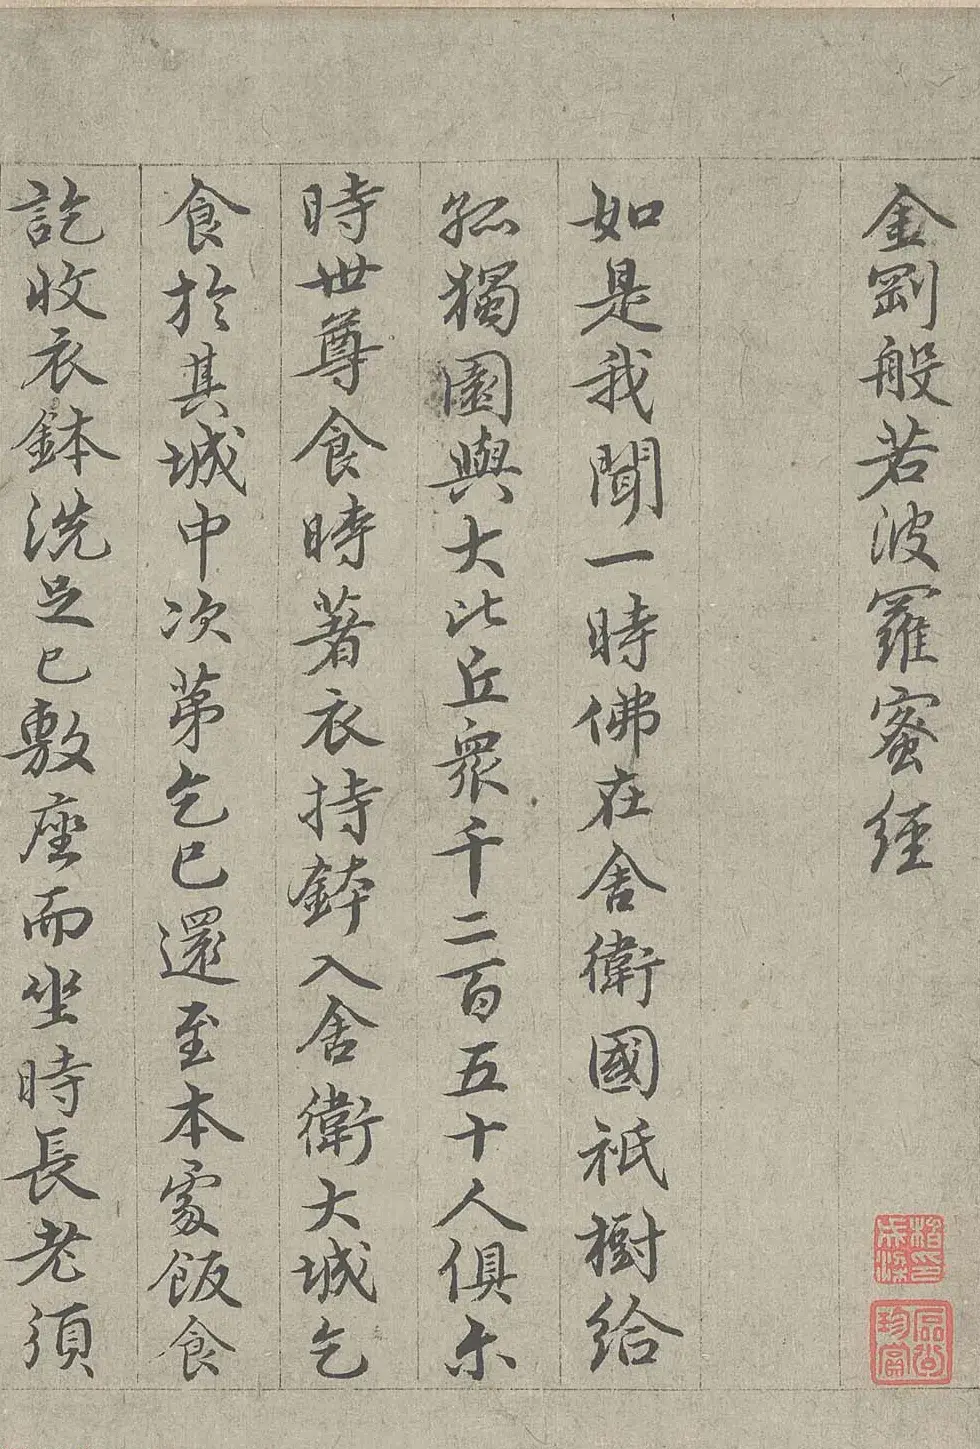 金剛般若波羅蜜經
如是我聞一時佛在舍衛國祇樹給
孤獨園與大比丘衆千二百五十人俱尒
時世尊食時著衣持鉢入舍衛大城乞
食於其城中次第乞已還至本處飯食
訖收衣鉢洗足已敷座而坐時長老須